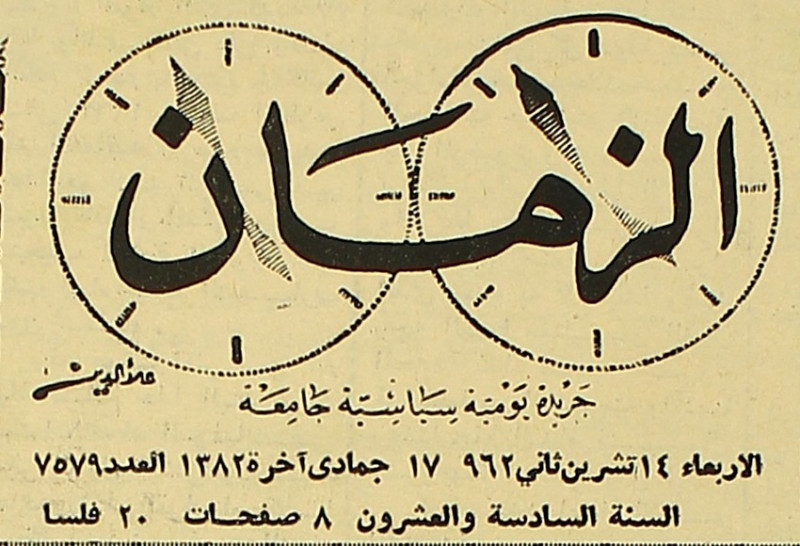 الزمان
علاءالدين
جريدة يومية سياسية جامعة
الاربعاء ١٤ تشرين ثاني ٩٦٢ ١٧ جمادى آخرة ١٣٨٢ العدد ٧٥٧٩
السنة السادسة والعشرون ٨ صفحات ٢٠ فلسا